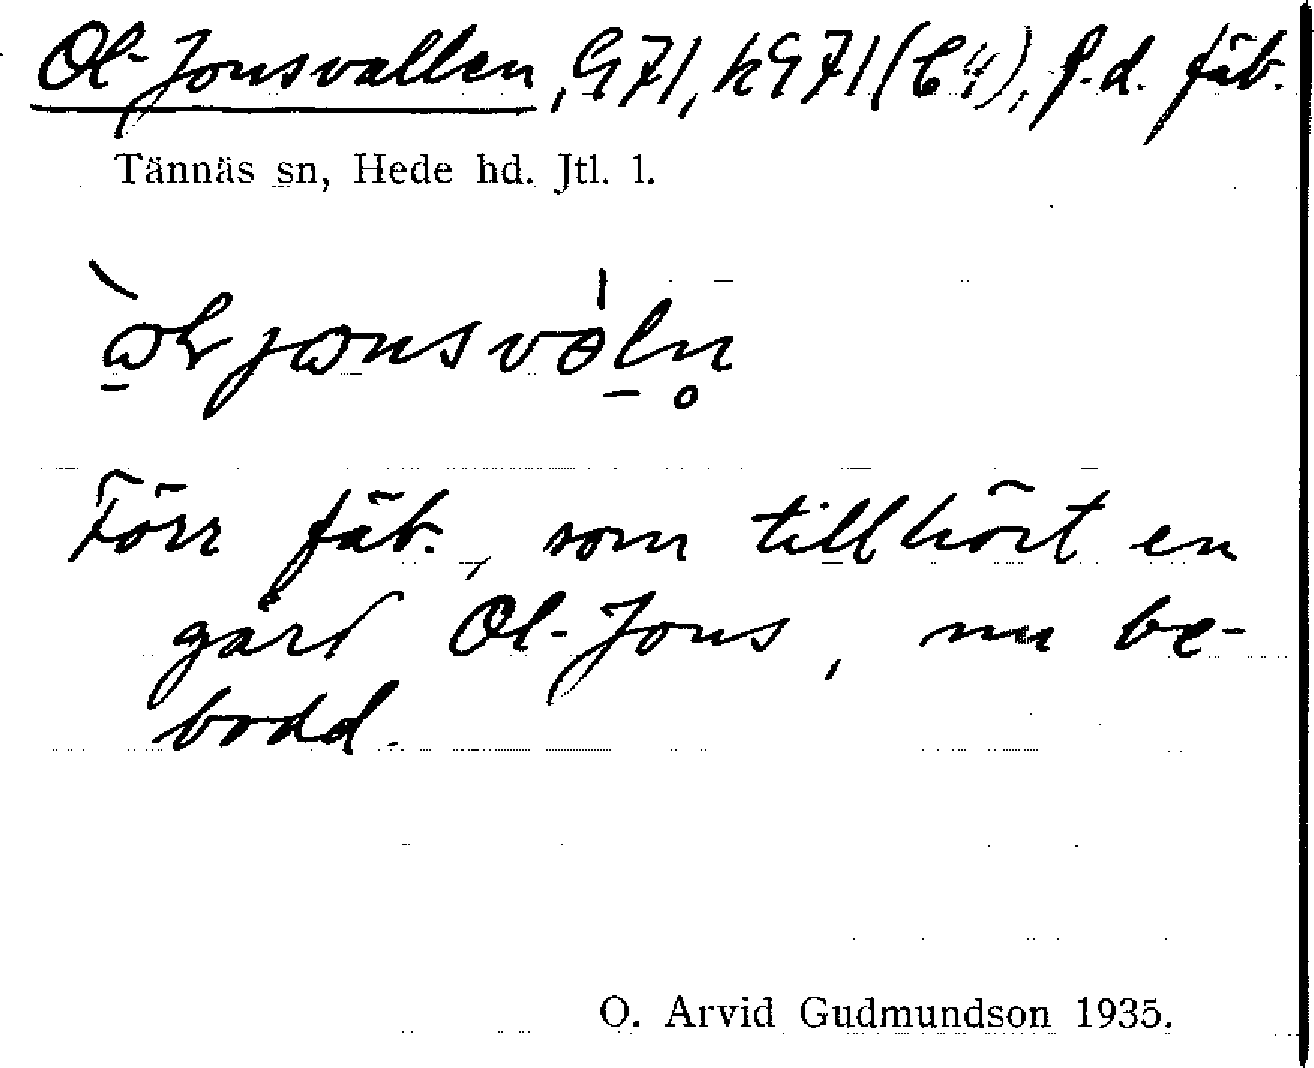 Ol-Jonsvallen, G71, kG71 (C4), f.d. fäb.
Tännäs sn, Hede hd. Jtl. 1.
Förr fäb., som tillhört en
gård Ol-Jons, nu be-
bodd.
O. Arvid Gudmundson 1935.